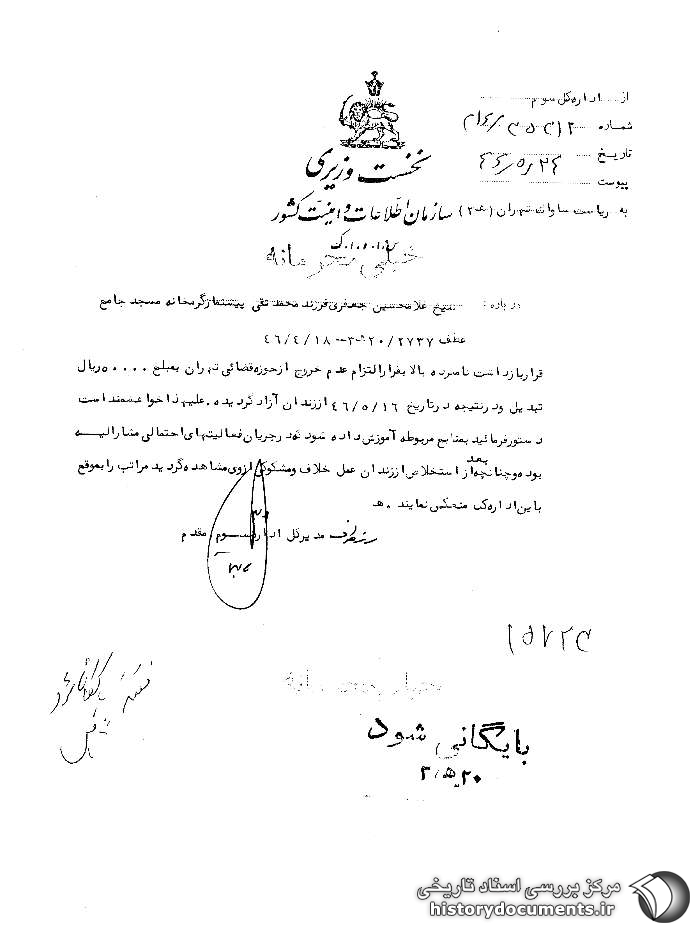 از اداره کل سوم
شماره ۳۱۴/۳۵۳۱۲
تاریخ ۴۶/۵/۲۴
پیوست
نخست وزیری
سازمان اطلاعات و امنیت کشور
به ریاست ساواک تهران (۲۰ه)
خیلی محرمانه
درباره : شیخ غلامحسین جعفری فرزند محمد تقی پیشنماز گرمخانه مسجد جامع
عطف ۲۰/۲۷۳۷ه۳-۴۶/۴/۱۸
قرار بازداشت نامبرده بالا بقرار التزام عدم خروج از حوزه قضائی تهران بمبلغ ۵۰۰۰۰ ریال
تبدیل و در نتیجه در تاریخ ۴۶/۵/۱۶ از زندان آزاد گردیده . علیهذا خواهشمند است
دستور فرمائید بمنابع مربوطه آموزش داده شود که در جریان فعالیتهای احتمالی مشارالیه
بوده و چنانچه بعد از استخلاص از زندان عمل خلاف و مشکوکی از وی مشاهده گردید مراتب را بموقع
باین اداره کل منعکس نمایند . ه
مدیرکل اداره سوم . مقدم
۱۵۷۲۴
بایگانی شود
۲۰/۵
مرکز بررسی اسناد تاریخی
historydocuments.ir